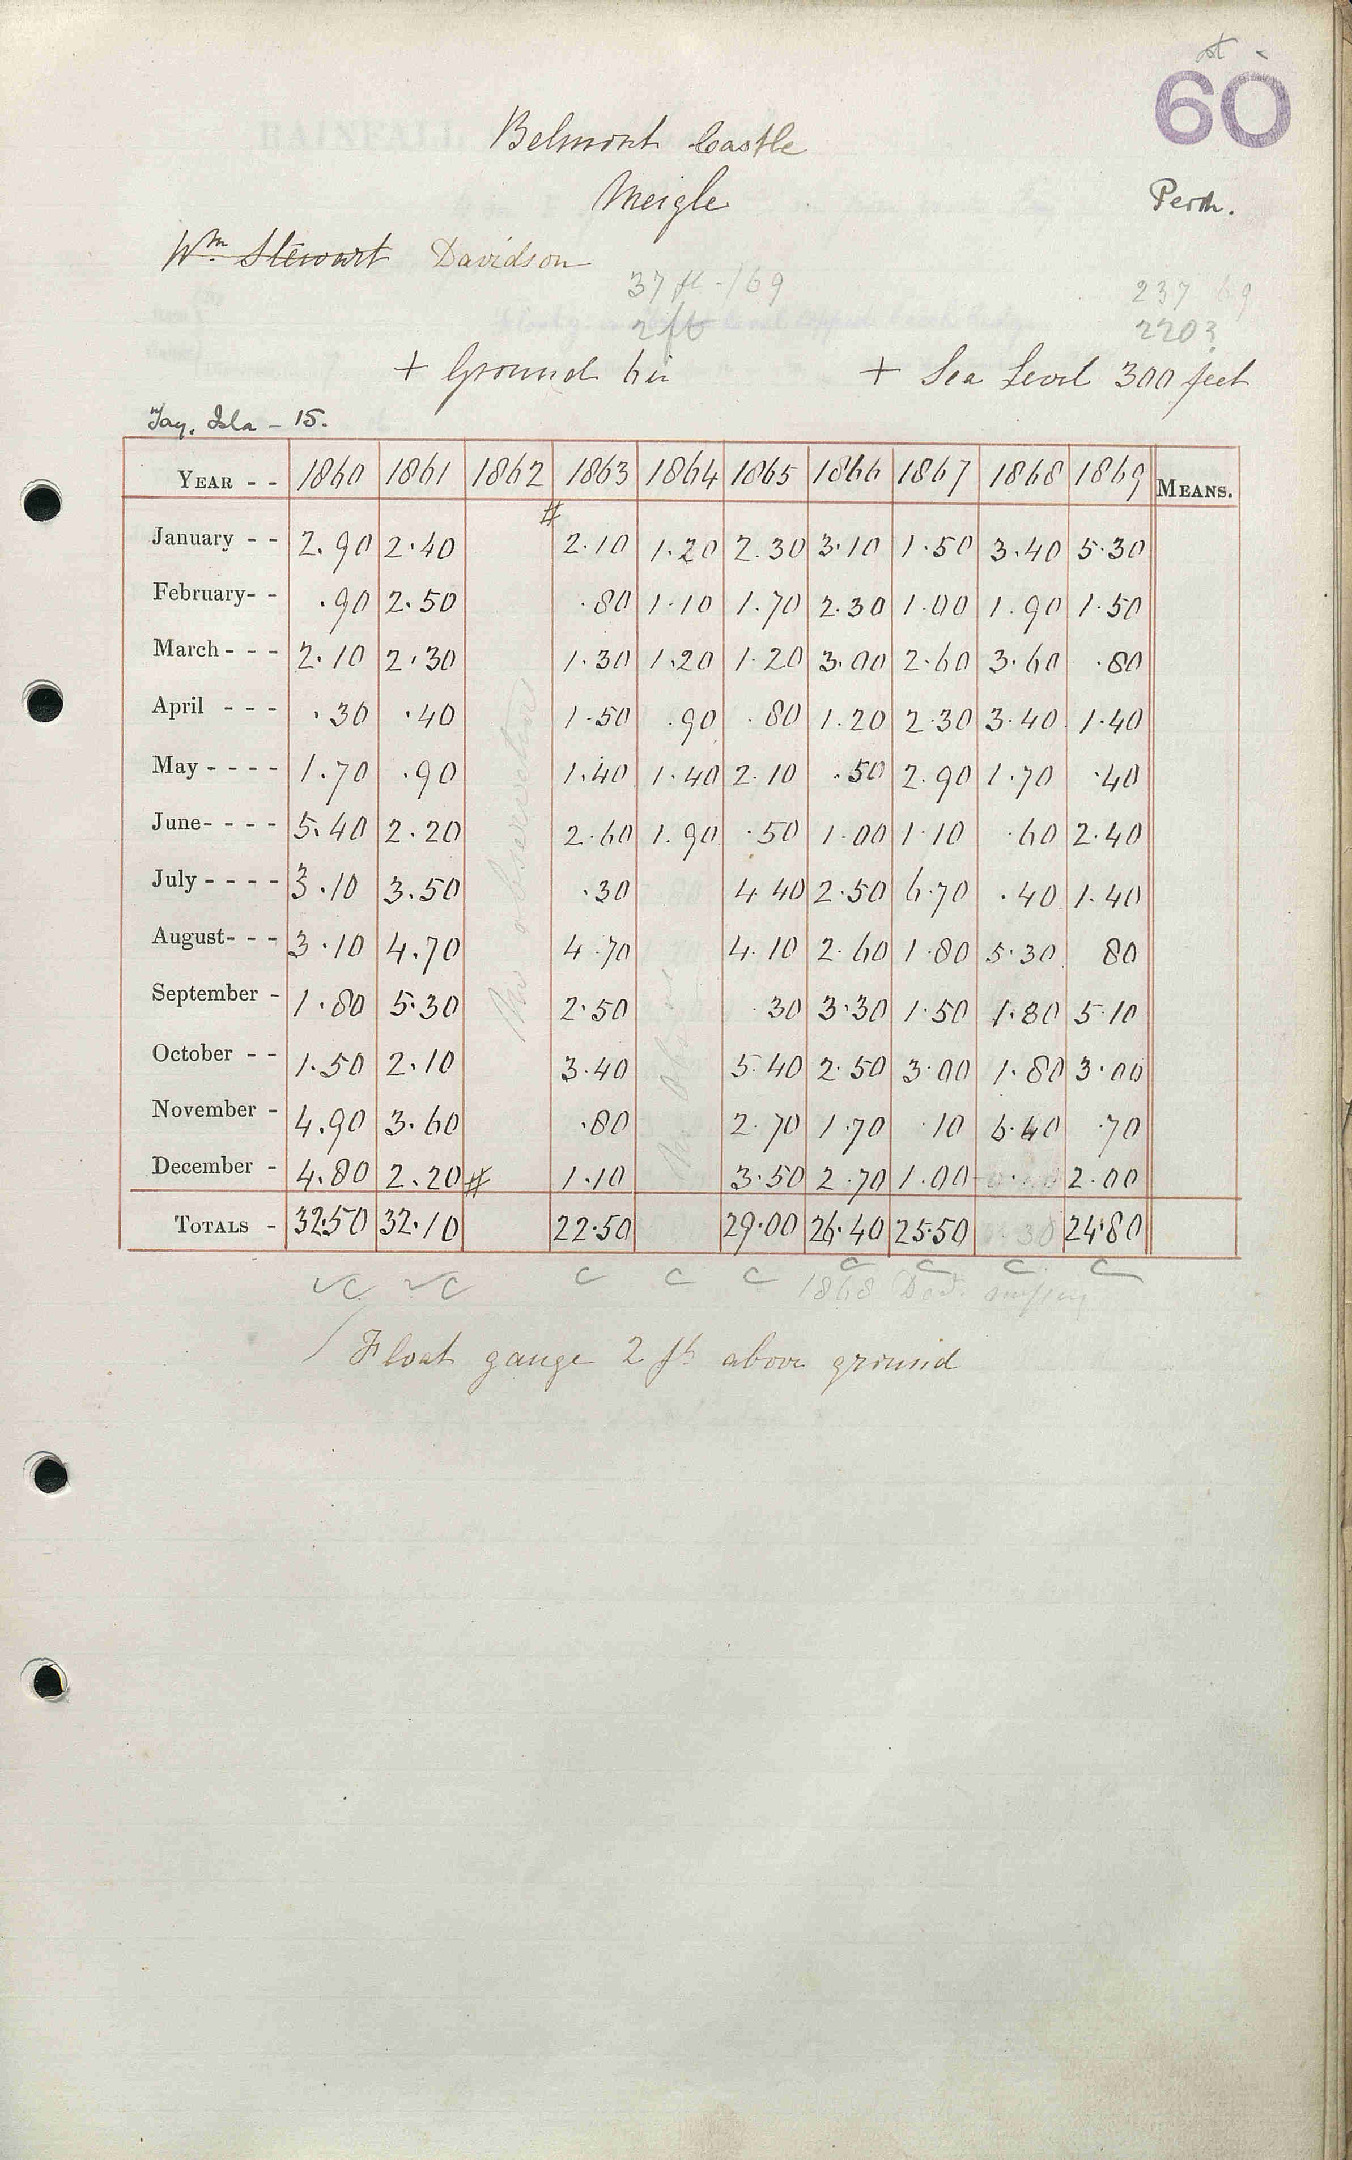 60
Belmont Castle
Meigle
Perth.
Wm. Stewart Davidson
37 ft - /69
237 69
2 ft
220?
+ Ground 6 in
+ Sea Level 300 feet
Tay, Isla - 15.
YEAR - - 1860 1861 1862 1863 1864 1865 1866 1867 1868 1869 MEANS.
January - - 2.90 2.40 # 2.10 1.20 2.30 3.10 1.50 3.40 5.30
February- - .90 2.50 .80 1.10 1.70 2.30 1.00 1.90 1.50
March - - - 2.10 2.30 1.30 1.20 1.20 3.00 2.60 3.60 .80
April - - - .30 .40 1.50 .90 .80 1.20 2.30 3.40 1.40
May - - - - 1.70 .90 1.40 1.40 2.10 .50 2.90 1.70 .40
June- - - - 5.40 2.20 2.60 1.90 .50 1.00 1.10 .60 2.40
July - - - - 3.10 3.50 .30 4.40 2.50 6.70 .40 1.40
August- - - 3.10 4.70 4.70 4.10 2.60 1.80 5.30 80
September - 1.80 5.30 2.50 .30 3.30 1.50 1.80 5.10
October - - 1.50 2.10 3.40 5.40 2.50 3.00 1.80 3.00
November - 4.90 3.60 .80 2.70 1.70 .10 6.40 .70
December - 4.80 2.20 # 1.10 3.50 2.70 1.00 2.00
TOTALS - 32.50 32.10 22.50 29.00 26.40 25.50 24.80
No observations
No obs
C C C C C C C C C
1868 Dec.
Float gauge 2 ft above ground